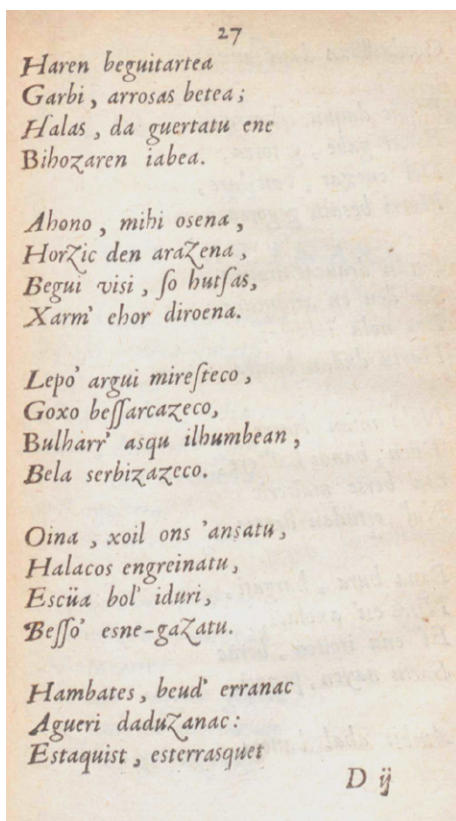 27
Haren beguitartea
Garbi, arrosas betea;
Halas, da guertatu ene
Bihozaren iabea.
Ahono, mihi osena,
Horzic den arazena,
Begui visi, ſo hutſas,
Xarm' ehor diroena.
Lepo' argui mireſteco,
Goxo beſſarcazeco,
Bulharr' asqu ilhumbean,
Bela serbizazeco.
Oina, xoil ons 'ansatu,
Halacos engreinatu,
Escüa bol' iduri,
Beſſo' esne-gazatu.
Hambates, beud' erranac
Agueri daduzanac:
Estaquist, esterrasquet
D ij